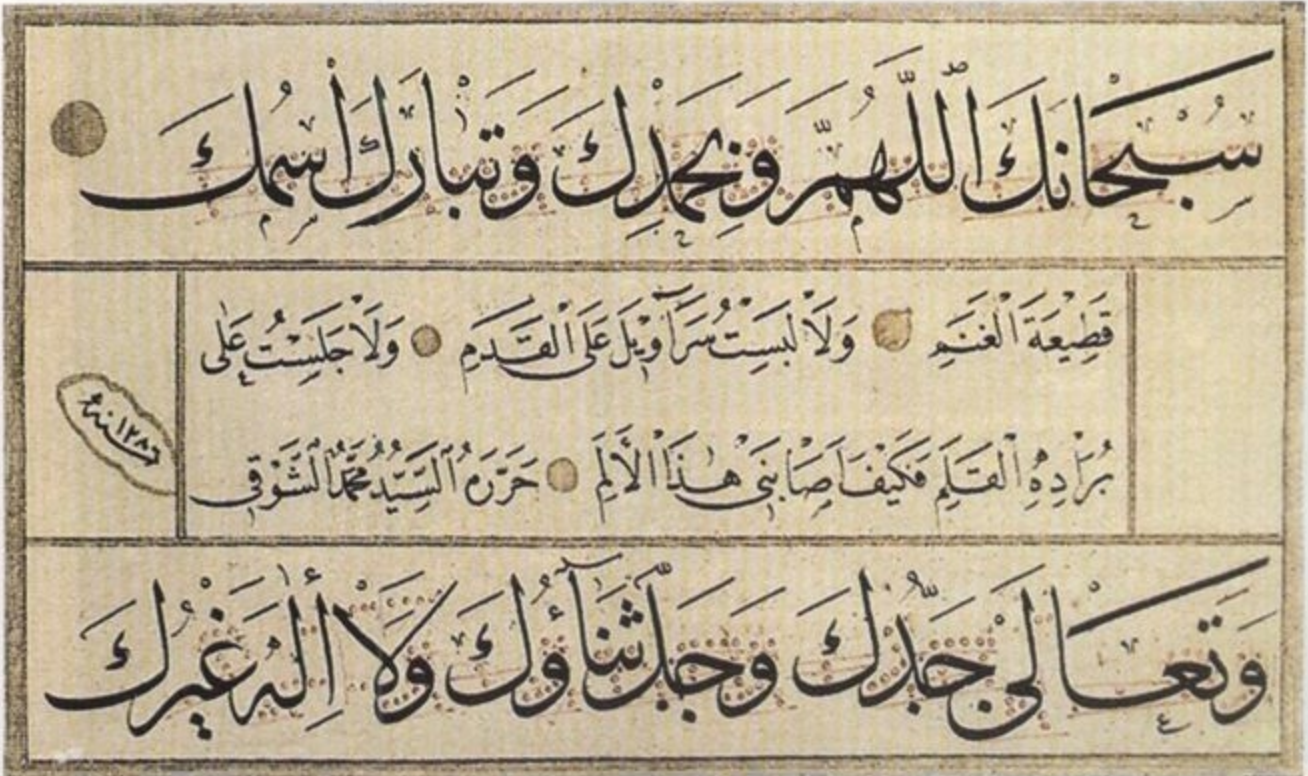 سُبْحَانَكَ ٱللَّهُمَّ وَبِحَمْدِكَ وَتَبَارَكَ ٱسْمُكَ
قَطِيعَةَ ٱلْغَنَمِ وَلَا لَبِسْتُ سَرَاوِيلَ عَلَى ٱلْقَدَمِ وَلَا جَلَسْتُ عَلَى
بُرَادِهِ ٱلْقَلَمِ فَكَيْفَ اَصَابَنِى هٰذَا ٱلْأَلَمِ حَرَّرَهُ ٱلسَّيِّدُ مُحَمَّدُ ٱلشَّوْقِى
سنة ١٢٨٦
وَتَعَالَىٰ جَدُّكَ وَجَلَّ ثَنَاۤؤُكَ وَلَا إِلٰهَ غَيْرُكَ